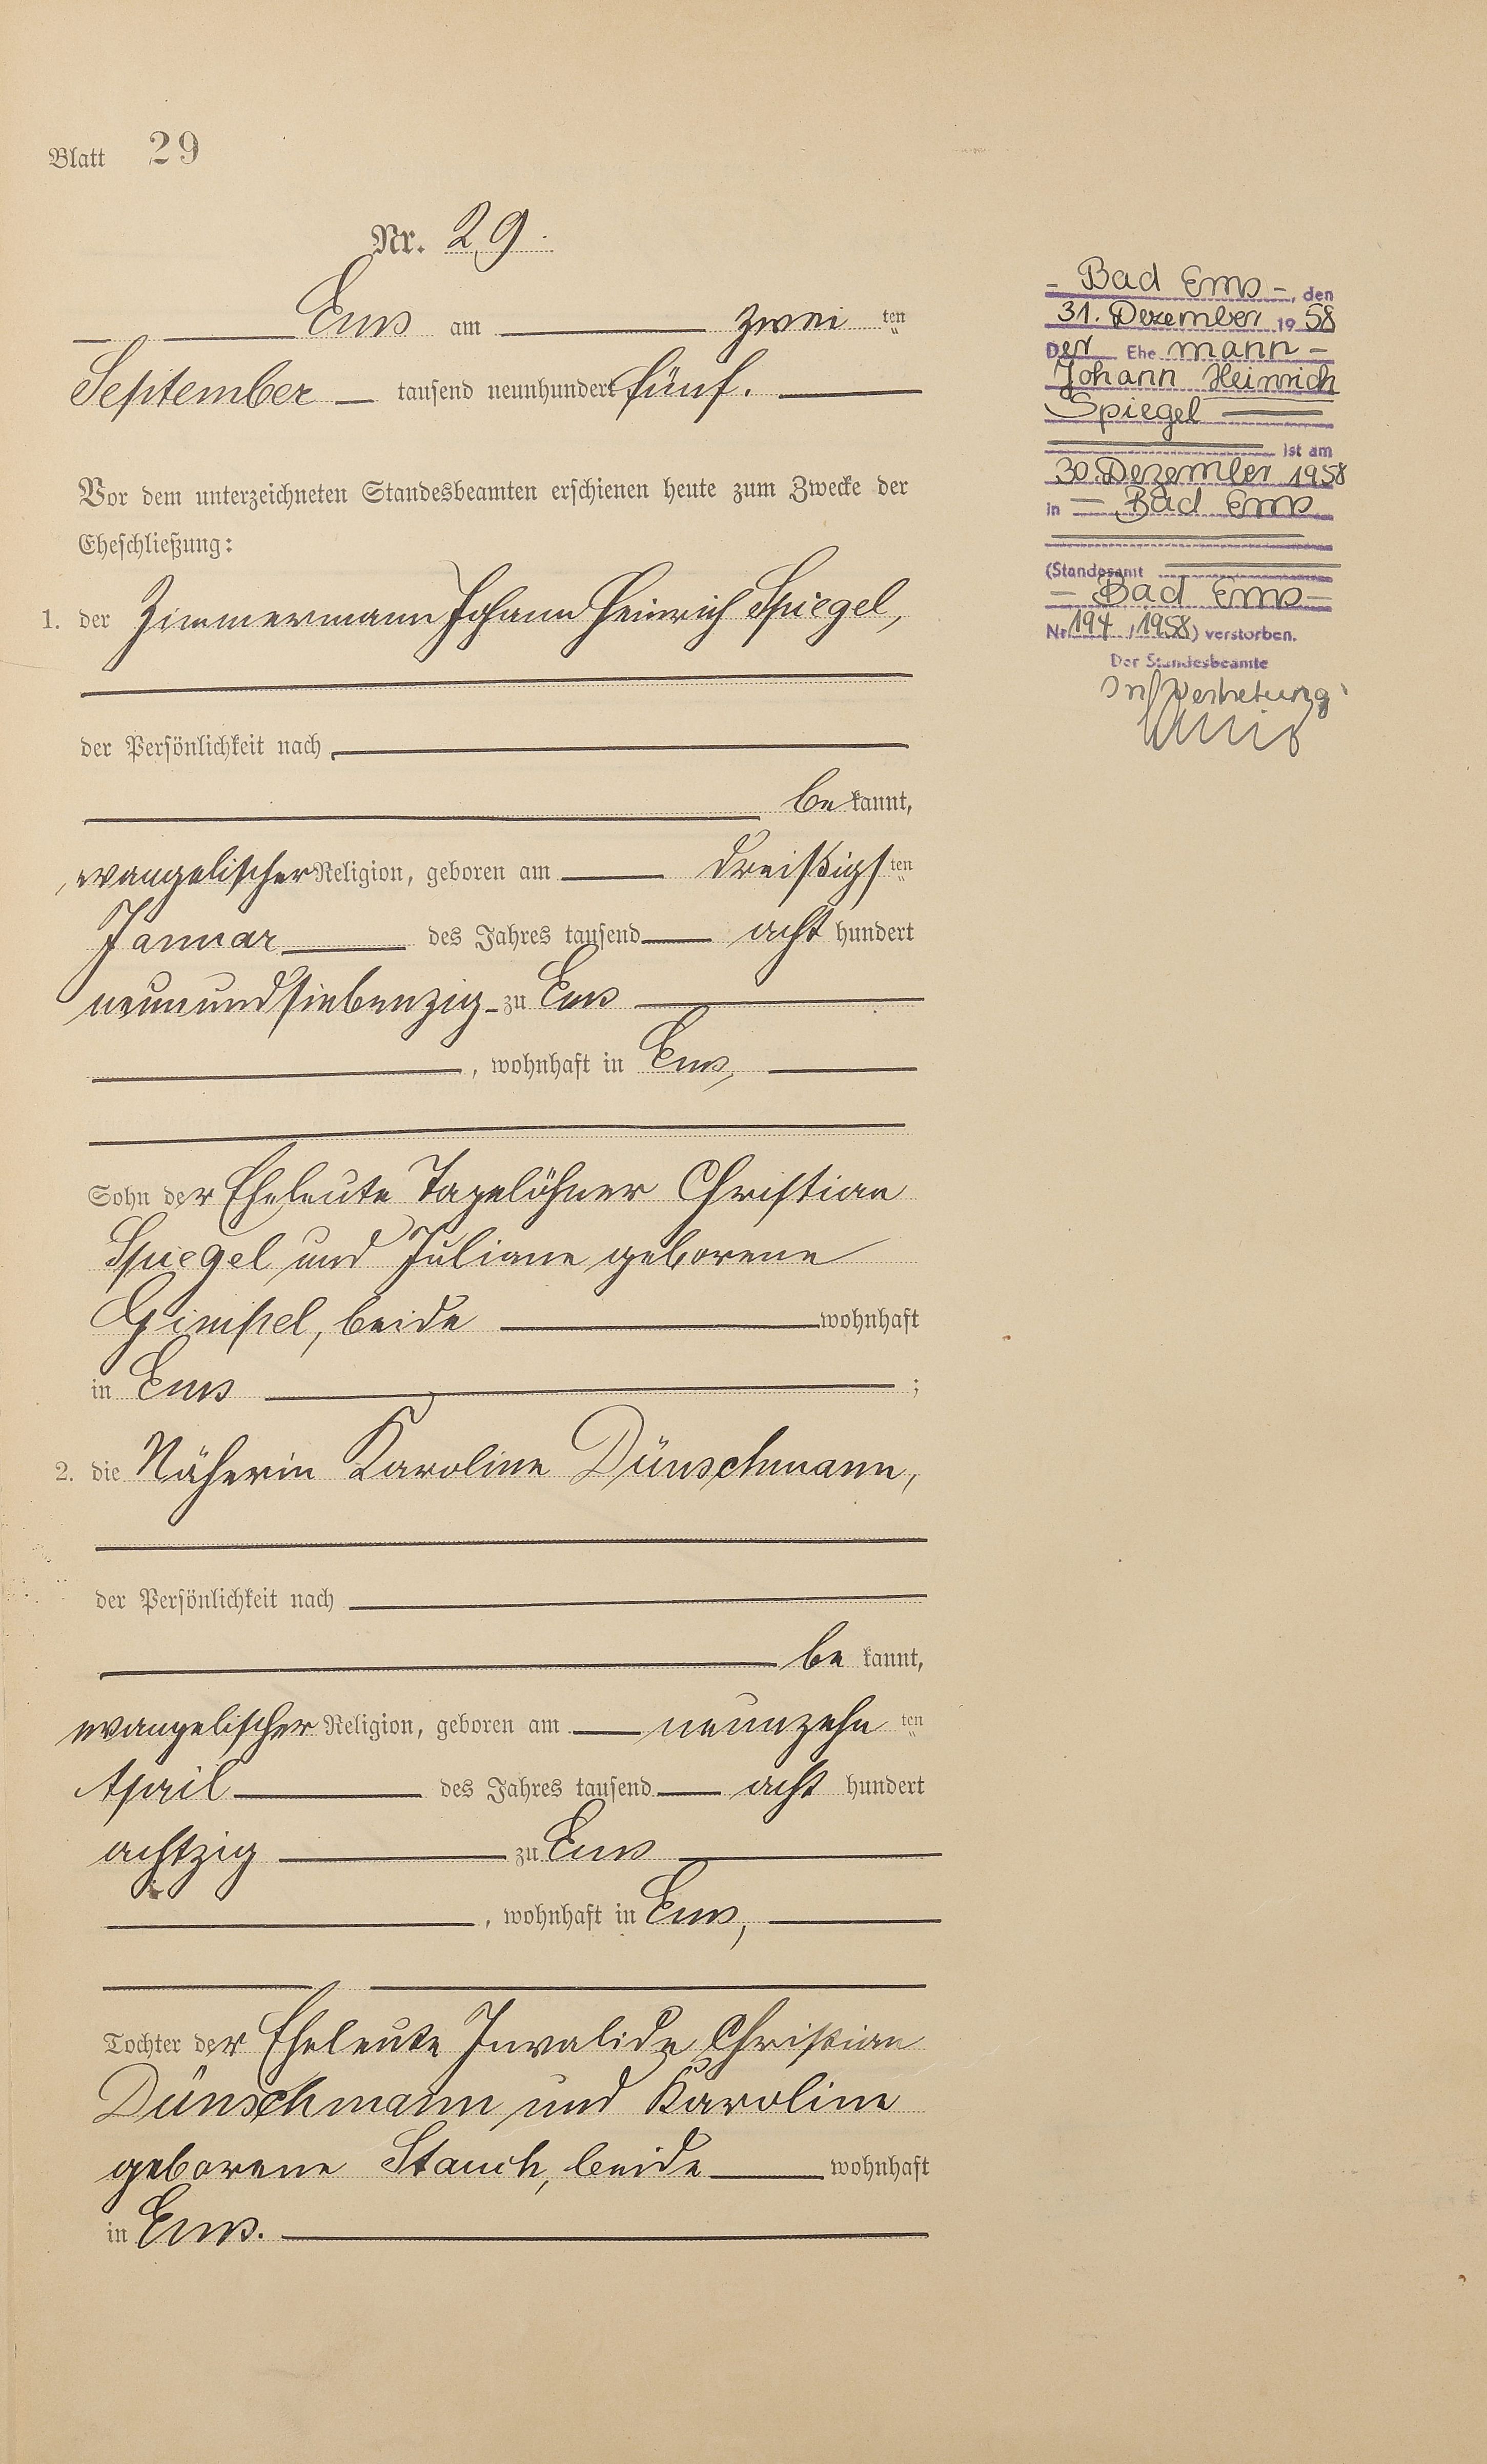 Blatt 29
Nr. 29.
Ems am zwei ten
September tausend neunhundert fünf.
Vor dem unterzeichneten Standesbeamten erschienen heute zum Zwecke der
Eheschließung:
1. der Zimmermann Johann Heinrich Spiegel,
der Persönlichkeit nach
be kannt,
evangelischer Religion, geboren am dreißigs ten
Januar des Jahres tausend acht hundert
neunundsiebenzig zu Ems
, wohnhaft in Ems,
Sohn der Eheleute Tagelöhner Christian
Spiegel und Juliane geborene
Gimpel, beide wohnhaft
in Ems ;
2. die Näherin Karoline Dünschmann,
der Persönlichkeit nach
be kannt,
evangelischer Religion, geboren am neunzehn ten
April des Jahres tausend acht hundert
achtzig zu Ems
, wohnhaft in Ems,
Tochter der Eheleute Invalide Christian
Dünschmann und Karoline
geborene Stauch, beide wohnhaft
in Ems.
- Bad Ems -, den
31. Dezember 19 58
Der Ehe mann -
Johann Heinrich
Spiegel
ist am
30. Dezember 1958
in - Bad Ems
(Standesamt
- Bad Ems -
Nr. 194 / 1958) verstorben.
Der Standesbeamte
In Vertretung